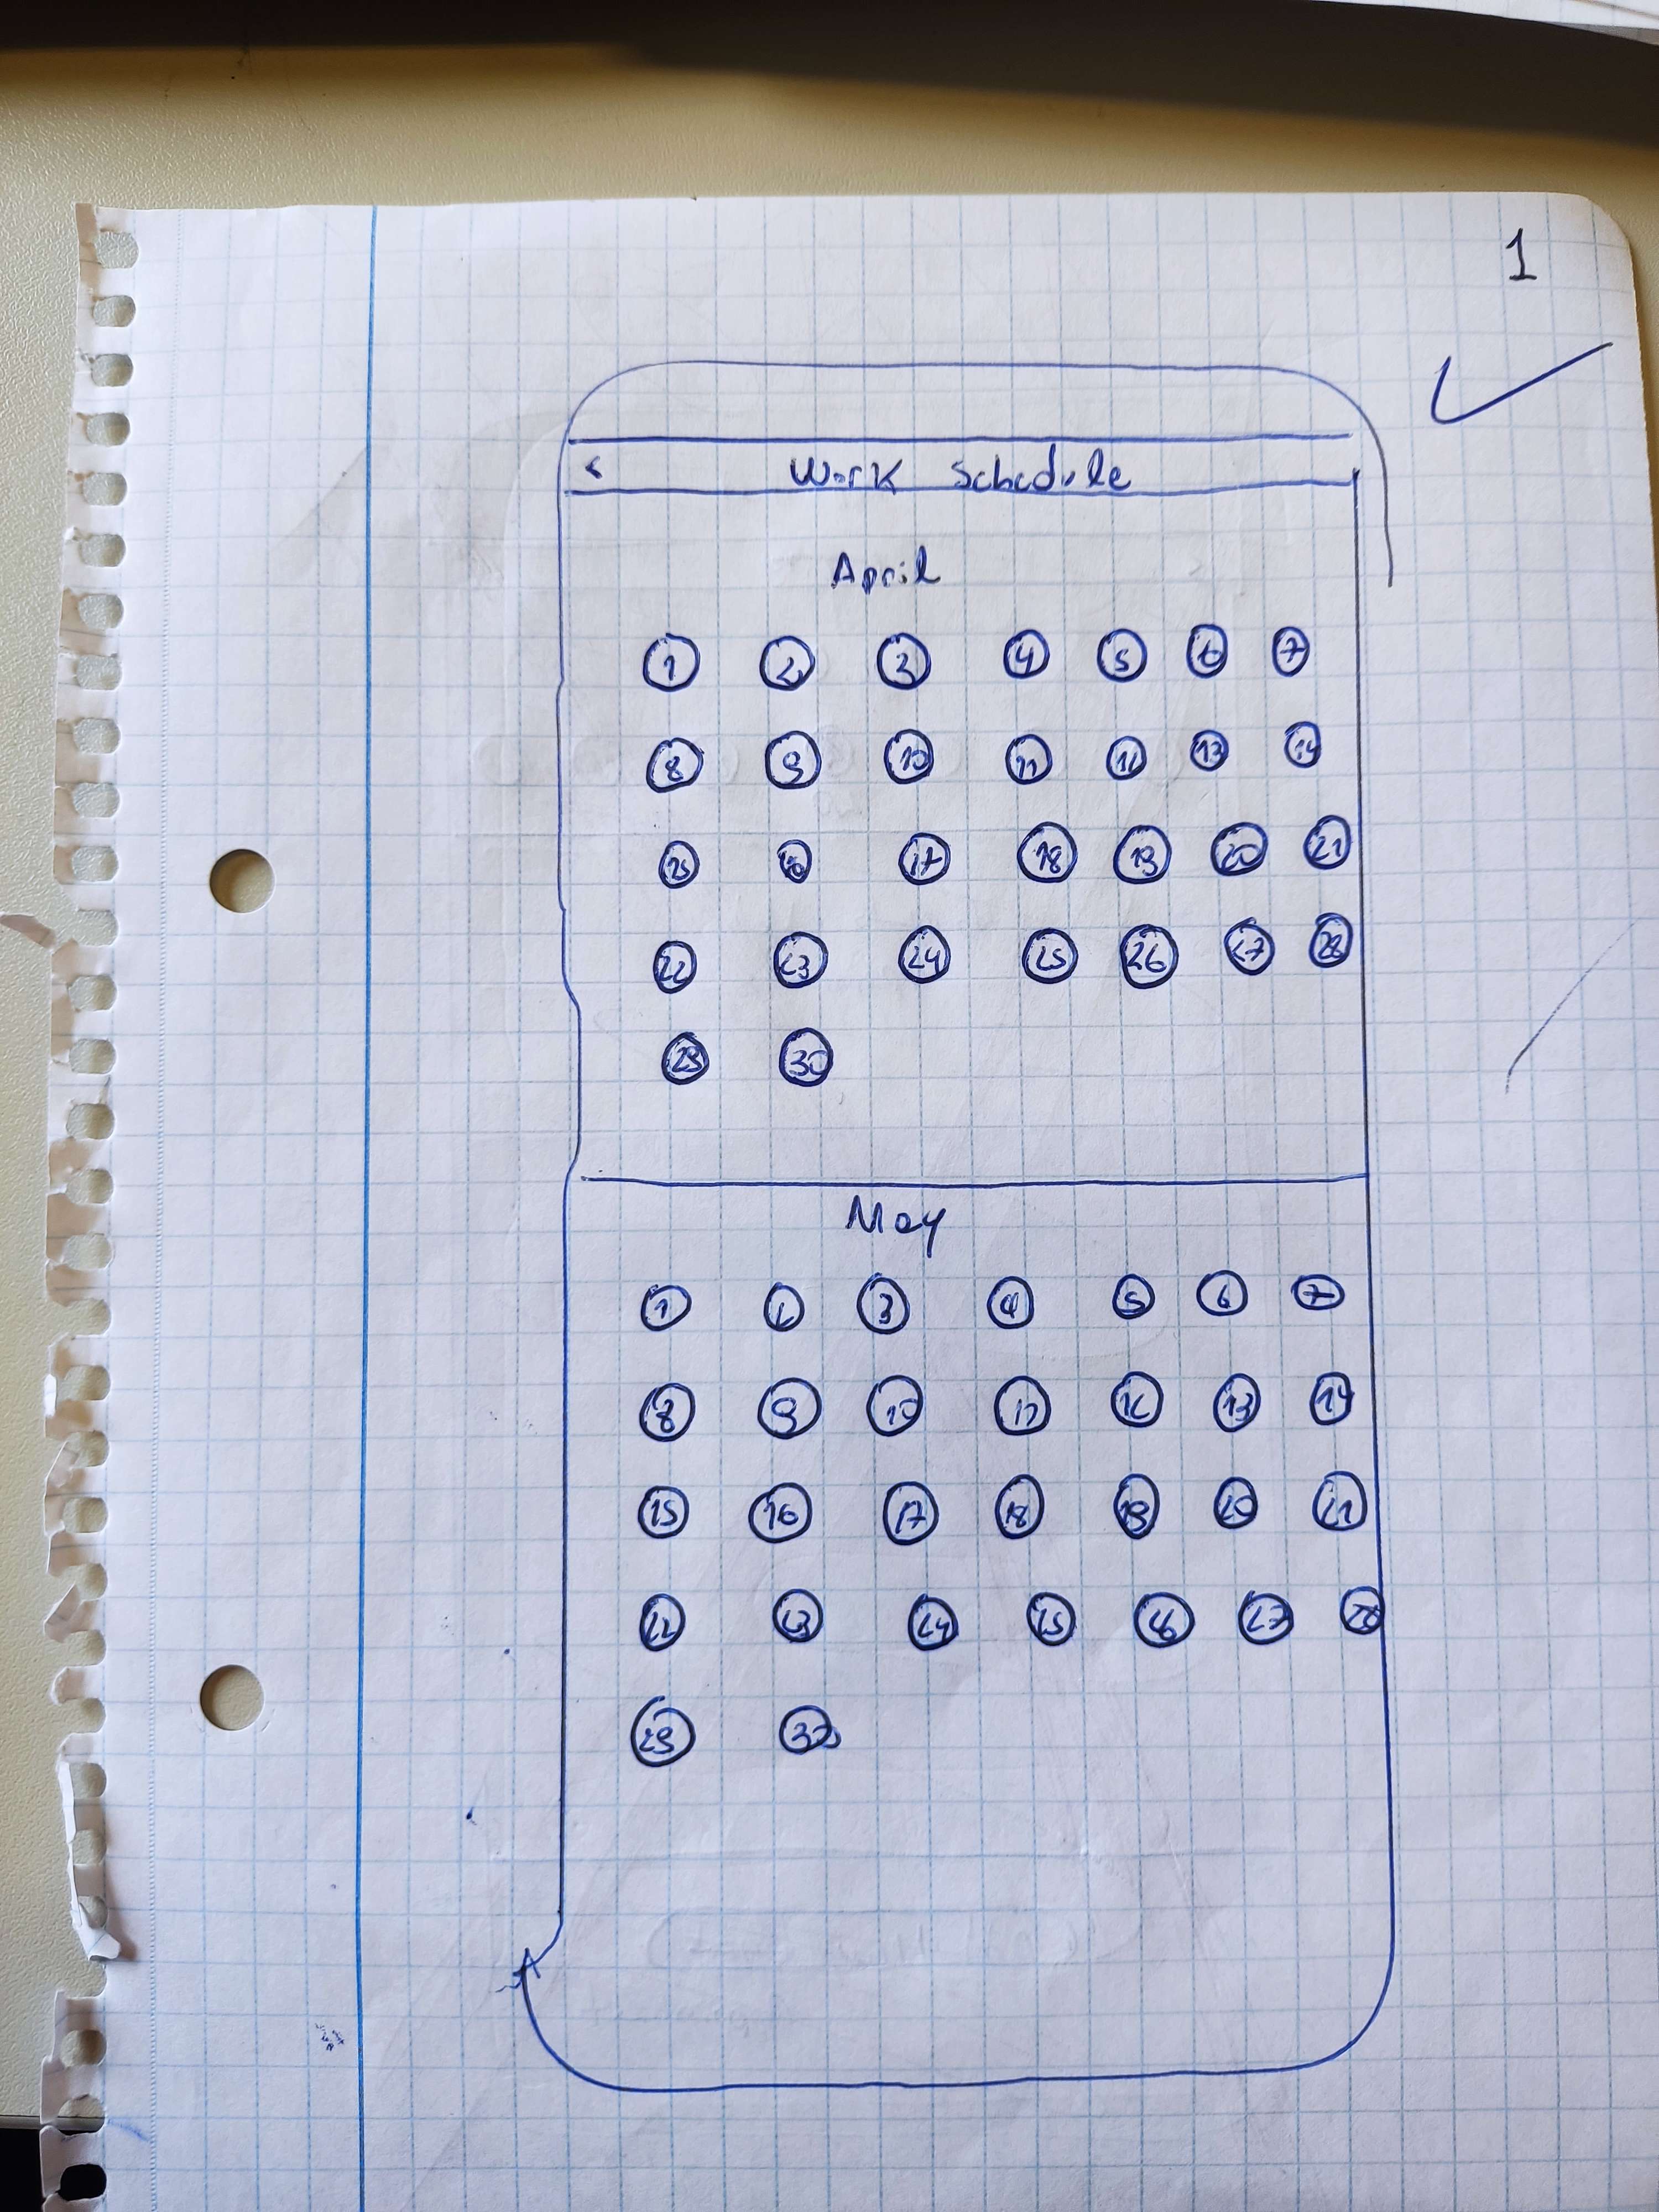 1
< Work Schedule
April
1 2 3 4 5 6 7
8 9 10 11 12 13 14
15 16 17 18 19 20 21
22 23 24 25 26 27 28
29 30
May
1 2 3 4 5 6 7
8 9 10 11 12 13 14
15 16 17 18 19 20 21
22 23 24 25 26 27 28
29 30